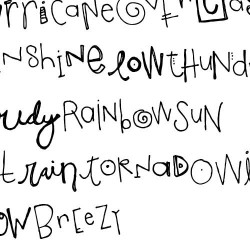 urricane overcas
nshine low thund
oudy Rainbow Sun
t rain tornado Wi
ow Breezy